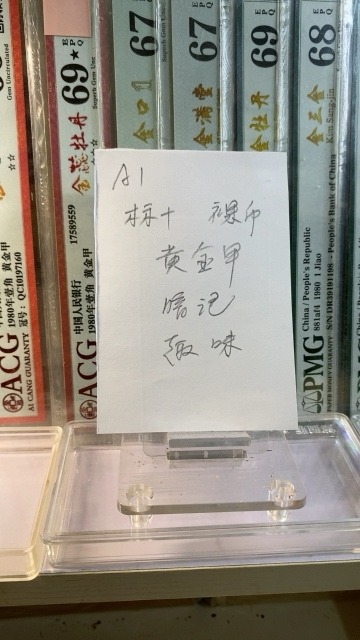 Gem Uncirculated
ACG
1980年壹角 黄金甲
冠号：QC10197160
AI CANG GUARANTY
69★ EPQ
Superb Gem Unc
金蕊牡丹
☆☆
17589559
中国人民银行
1980年壹角 黄金甲
ACG
67 EPQ
金口1
67 EPQ
金满堂
69 EPQ
金牡丹
68 EPQ
金三金
Kim Sang-jin
PMG
China / People's Republic
881af4 1980 1 Jiao
S/N DR39191198 - People's Bank of China
PAPER MONEY GUARANTY
A1
标十 裸币
黄金甲
暗记
趣味